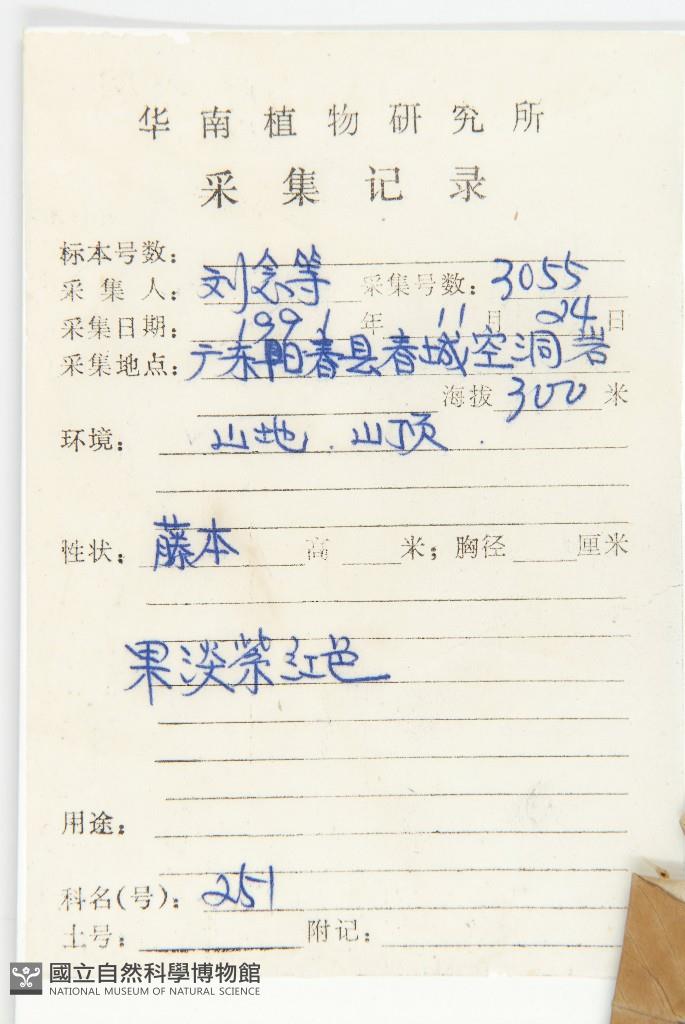 华南植物研究所
采集记录
标本号数:
采集人: 刘念等 采集号数: 3055
采集日期: 1991年11月24日
采集地点: 广东阳春县春城空洞岩
海拔 300 米
环境: 山地. 山顶.
性状: 藤本 高 米; 胸径 厘米
果淡紫红色
用途:
科名(号): 251
土号: 附记:
國立自然科學博物館
NATIONAL MUSEUM OF NATURAL SCIENCE